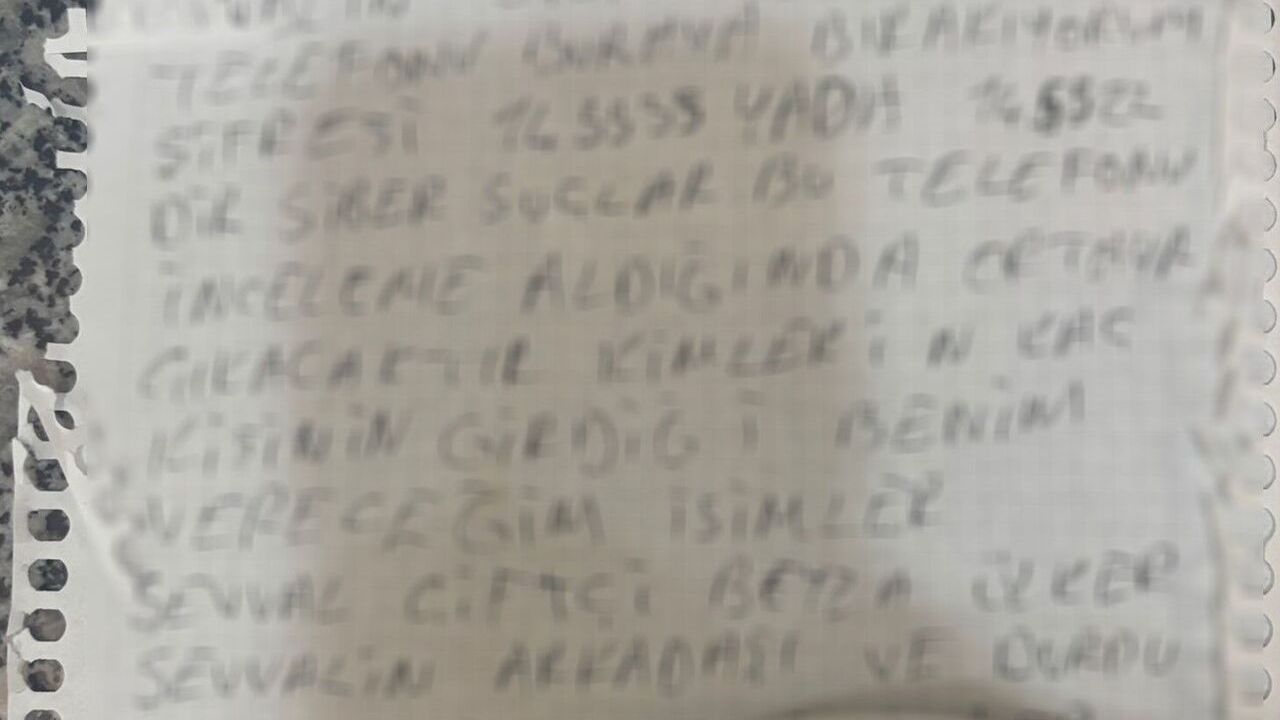 TELEFONU BURAYA BIRAKIYORUM
ŞİFRESİ YADA
DIR SİBER SUÇLAR BU TELEFONU
İNCELEME ALDIĞINDA ORTAYA
ÇIKACAKTIR KİMLERİN KAÇ
KİŞİNİN GİRDİĞİ BENİM
VERECEĞİM İSİMLER
ŞEVVAL ÇİFTÇİ İLKER
ŞEVVALİN ARKADAŞI VE DURDU